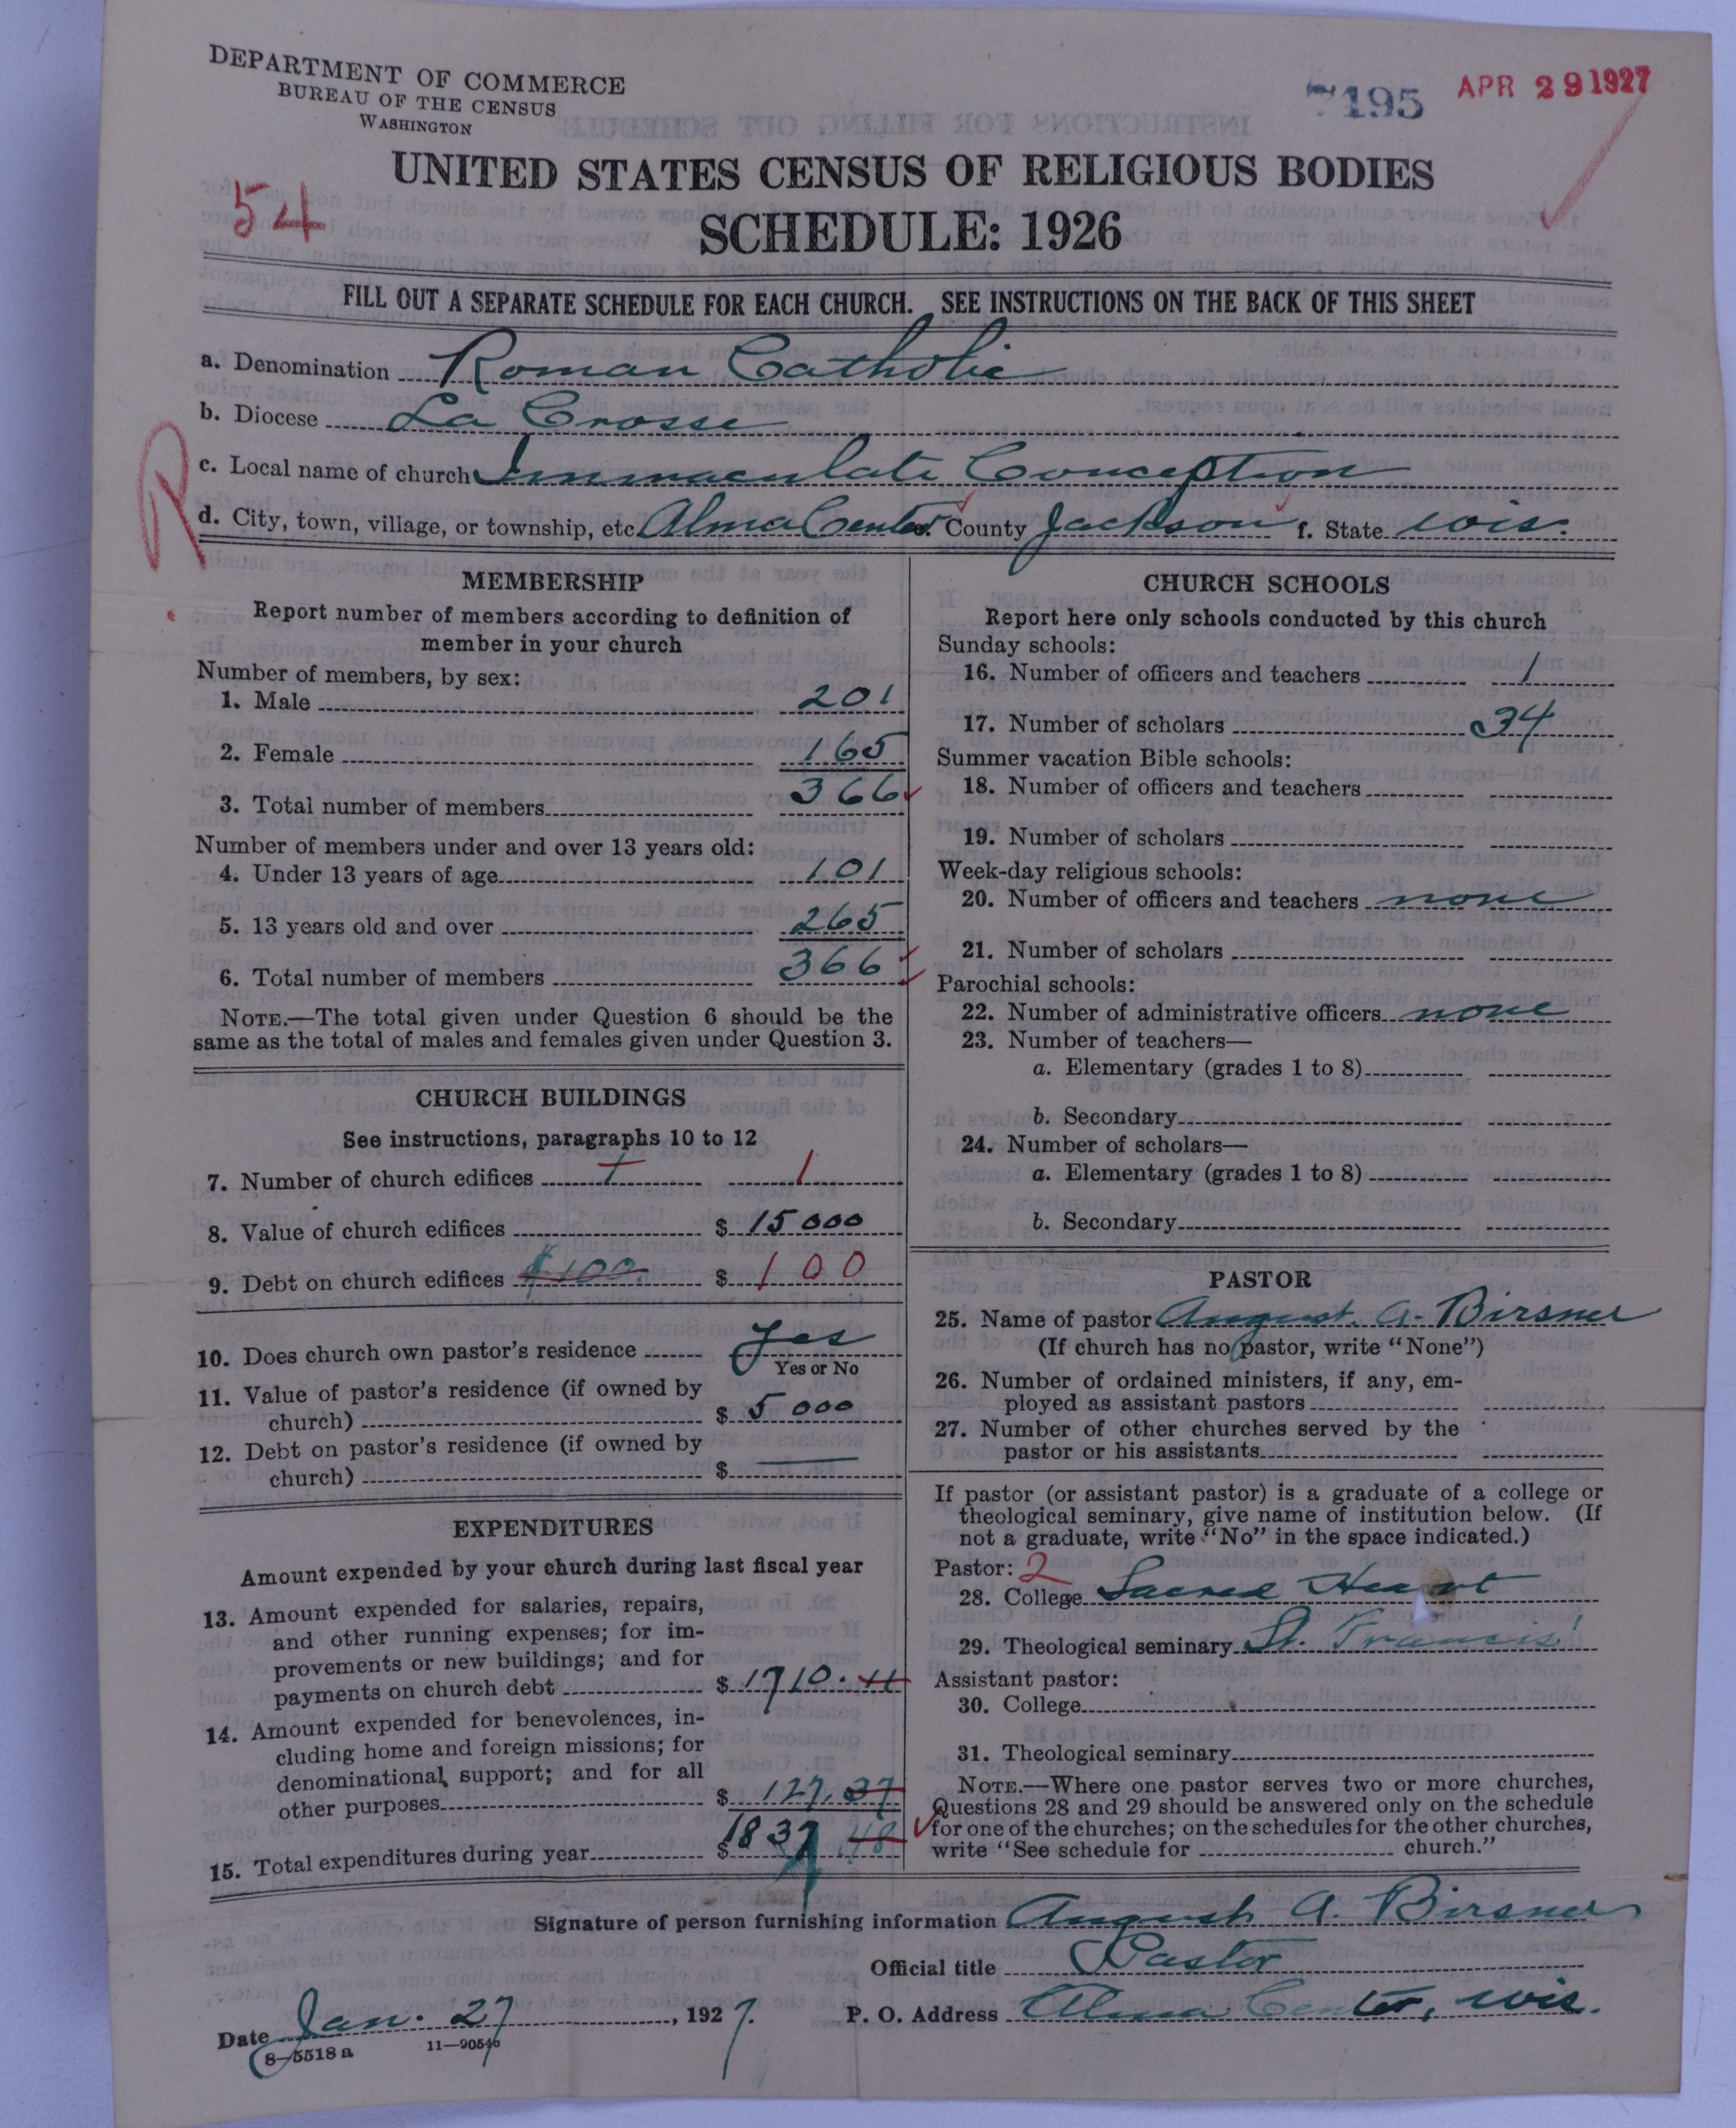 DEPARTMENT OF COMMERCE
BUREAU OF THE CENSUS
WASHINGTON
7195 APR 29 1927
UNITED STATES CENSUS OF RELIGIOUS BODIES
54
SCHEDULE: 1926
FILL OUT A SEPARATE SCHEDULE FOR EACH CHURCH. SEE INSTRUCTIONS ON THE BACK OF THIS SHEET
a. Denomination Roman Catholic
b. Diocese La Crosse
R
c. Local name of church Immaculate Conception
d. City, town, village, or township, etc. Alma Center County Jackson f. State Wis.
MEMBERSHIP
Report number of members according to definition of
member in your church
Number of members, by sex:
1. Male 201
2. Female 165
3. Total number of members 366
Number of members under and over 13 years old:
4. Under 13 years of age 101
5. 13 years old and over 265
6. Total number of members 366
NOTE.—The total given under Question 6 should be the
same as the total of males and females given under Question 3.
CHURCH BUILDINGS
See instructions, paragraphs 10 to 12
7. Number of church edifices 1 1
8. Value of church edifices $ 15000
9. Debt on church edifices $100. $ 100
10. Does church own pastor's residence Yes
Yes or No
11. Value of pastor's residence (if owned by
church) $ 5000
12. Debt on pastor's residence (if owned by
church) $ —
EXPENDITURES
Amount expended by your church during last fiscal year
13. Amount expended for salaries, repairs,
and other running expenses; for im-
provements or new buildings; and for
payments on church debt $ 1710.11
14. Amount expended for benevolences, in-
cluding home and foreign missions; for
denominational support; and for all
other purposes $ 127.37
15. Total expenditures during year $ 1837.48
CHURCH SCHOOLS
Report here only schools conducted by this church
Sunday schools:
16. Number of officers and teachers 1
17. Number of scholars 34
Summer vacation Bible schools:
18. Number of officers and teachers
19. Number of scholars
Week-day religious schools:
20. Number of officers and teachers none
21. Number of scholars
Parochial schools:
22. Number of administrative officers none
23. Number of teachers—
a. Elementary (grades 1 to 8)
b. Secondary
24. Number of scholars—
a. Elementary (grades 1 to 8)
b. Secondary
PASTOR
25. Name of pastor August. A. Birsner
(If church has no pastor, write "None")
26. Number of ordained ministers, if any, em-
ployed as assistant pastors
27. Number of other churches served by the
pastor or his assistants
If pastor (or assistant pastor) is a graduate of a college or
theological seminary, give name of institution below. (If
not a graduate, write "No" in the space indicated.)
Pastor: 2
28. College Sacred Heart
29. Theological seminary St. Francis'
Assistant pastor:
30. College
31. Theological seminary
NOTE.—Where one pastor serves two or more churches,
Questions 28 and 29 should be answered only on the schedule
for one of the churches; on the schedules for the other churches,
write "See schedule for church."
Signature of person furnishing information August A. Birsner
Official title Pastor
Date Jan. 27, 1927. P. O. Address Alma Center, Wis.
8—5518 a 11—90546